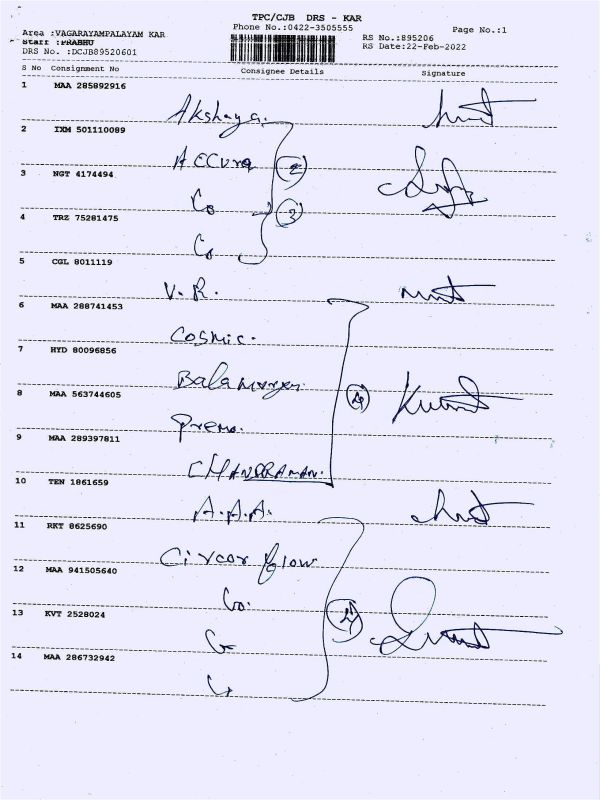 TPC/CJB DRS - KAR
Phone No.:0422-3505555
Page No.:1
Area :VAGARAYAMPALAYAM KAR
RS No.:895206
Staff :PRABHU
RS Date:22-Feb-2022
DRS No. :DCJB89520601
S No Consignment No Consignee Details Signature
1 MAA 285892916
Akshaya.
2 IXM 501110089
ACCura
2
3 NGT 4174494
Co
3
4 TRZ 75281475
Co
5 CGL 8011119
V. R.
6 MAA 288741453
Cosmic.
7 HYD 80096856
Balamurugan
8 MAA 563744605
Kumar
Prema.
9 MAA 289397811
CHANDRAMAN.
10 TEN 1861659
A.A.A.
11 RKT 8625690
Circor flow
12 MAA 941505640
Co.
13 KVT 2528024
14 MAA 286732942